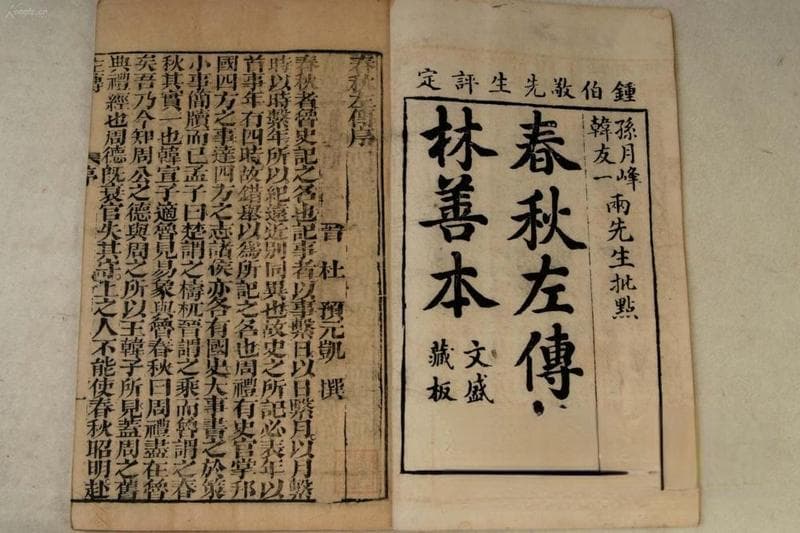 鍾伯敬先生評定
孫月峰
韓友一
兩先生批點
春秋左傳
林善本
文盛
藏板
春秋左傳序
晉杜預元凱撰
春秋者魯史記之名也記事者以事繫日以日繫月以月繫
時以時繫年所以紀遠近別同異也故史之所記必表年以
首事年有四時故錯舉以爲所記之名也周禮有史官掌邦
國四方之事達四方之志諸侯亦各有國史大事書之於策
小事簡牘而已孟子曰楚謂之檮杌晉謂之乘而魯謂之春
秋其實一也韓宣子適魯見易象與魯春秋曰周禮盡在魯
矣吾乃今知周公之德與周之所以王韓子所見蓋周之舊
典禮經也周德既衰官失其守上之人不能使春秋昭明赴
左傳 序